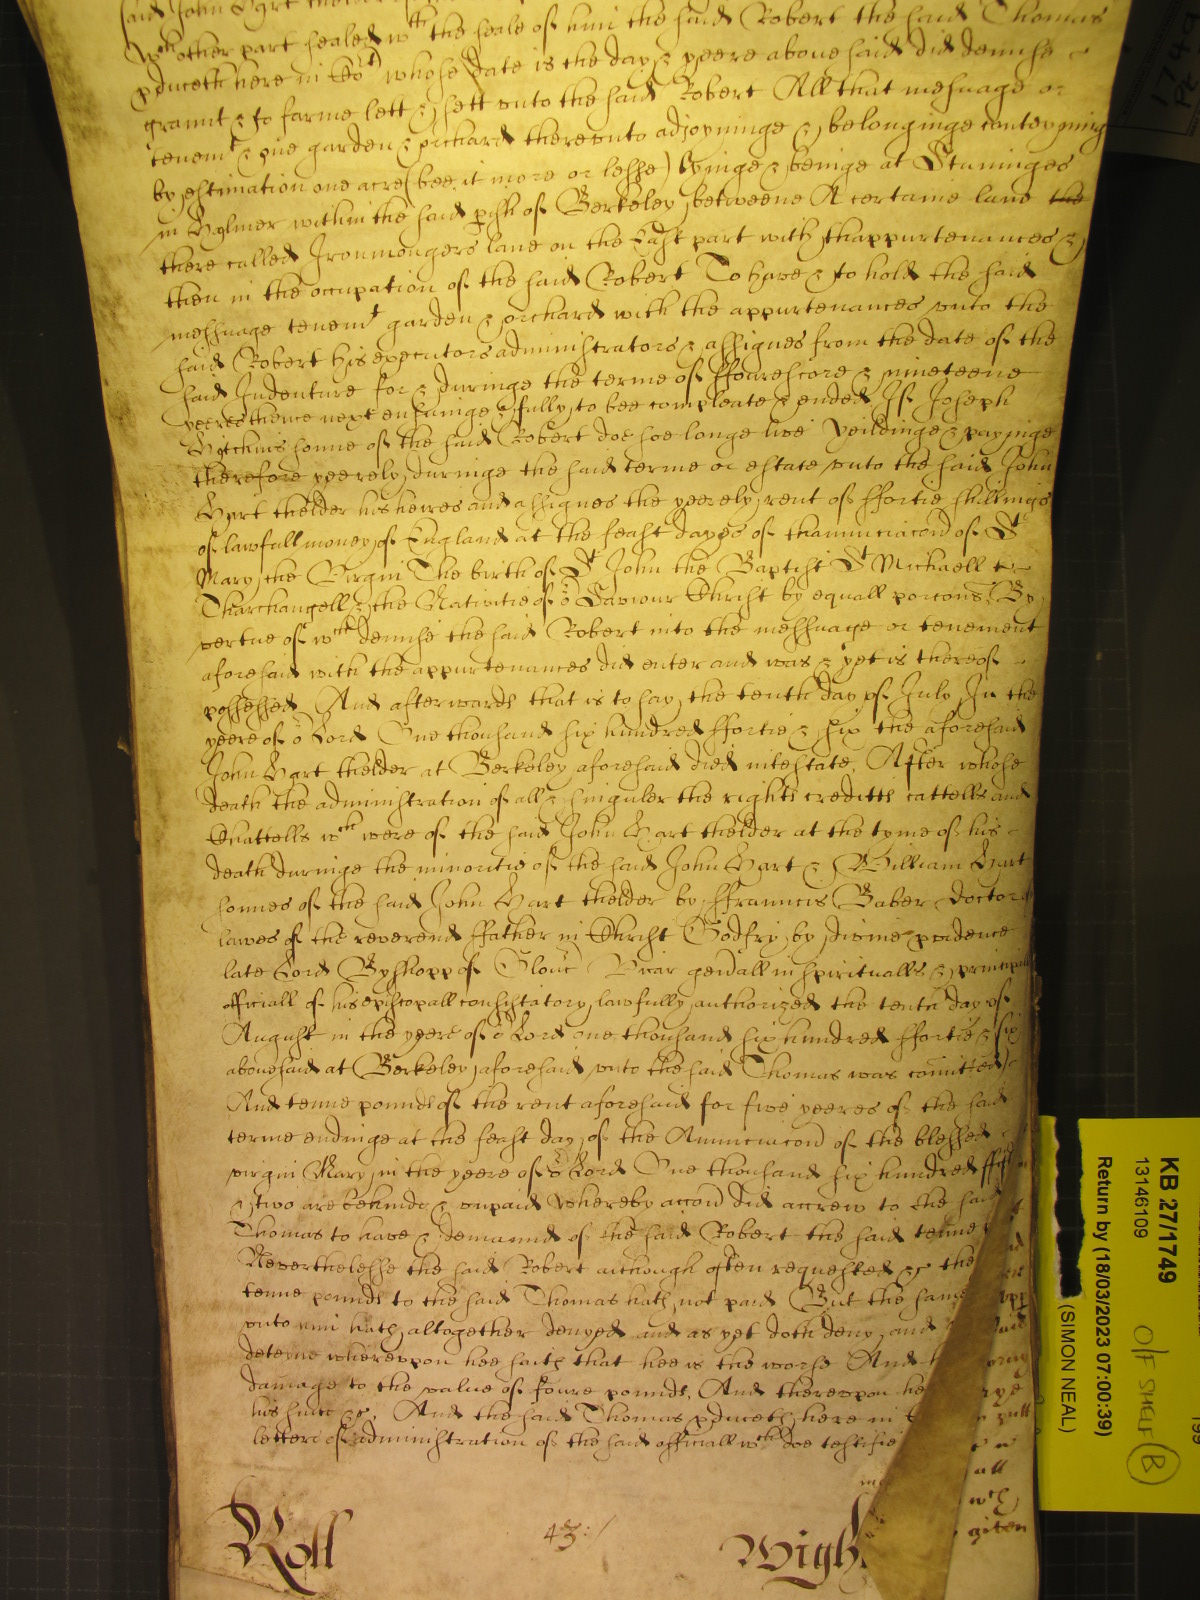 said John Hart thelder
wch other part sealed wth the seale of him the said Robert the said Thomas
pduceth here in Cort whose date is the day & yeere abovesaid did demise
graunt & to farme lett & sett unto the said Robert All that mesuage or
tenemt & one garden & orchard thereunto adjoyninge & belonginge conteyning
by estimation one acre (bee it more or lesse) lyinge & beinge at Stuninges
in Hylmer within the said pish of Berkeley betweene A certaine land the
there called Ironmongers lane on the East part with thappurtenances &
then in the occupation of the said Robert To have & to hold the said
messuage tenemt garden & orchard with the appurtenances unto the
said Robert his executors administrators & assignes from the date of the
said Indenture for & duringe the terme of ffourescore & nineteene
yeeres thence next ensuinge & fully to bee compleate & ended If Joseph
Hitchins sonne of the said Robert doe soe longe live Yeildinge & payinge
therefore yeerely duringe the said terme or estate unto the said John
Hart thelder his heires and assignes the yeerely rent of ffortie shillings
of lawfull money of England at the feast dayes of thannunciacon of St
Mary the Virgin The birth of St John the Baptist St Michaell
Tharchangell & the Nativitie of or Saviour Christ by equall porcons By
vertue of wch demise the said Robert into the messuage or tenement
aforesaid with the appurtenances did enter and was & yet is thereof
possessed And afterwards that is to say the tenth day of July In the
yeere of or Lord One thousand six hundred ffortie & six the aforesaid
John Hart thelder at Berkeley aforesaid died intestate. After whose
death the administration of all & singuler the rights creditts cattells and
Chattells wch were of the said John Hart thelder at the tyme of his
death duringe the minoritie of the said John Hart & William Hart
sonnes of the said John Hart thelder by ffranncis Baber doctor
lawes of the reverend ffather in Christ Godfry by divine pvidence
late Lord Bysshopp of Glouc Vicar genall in spiritualls & principall
officiall of his episcopall consistatory lawfully authorized the tenth day of
August in the yeere of or Lord one thousand six hundred ffortie & six
abovesaid at Berkeley aforesaid unto the said Thomas was comitted
And tenne pounds of the rent aforesaid for five yeeres of the said
terme endinge at the feast day of the Annunciacon of the blessed
virgin Mary in the yeere of or Lord One thousand six hundred
& two are behinde & unpaid Whereby accon did accrew to the said
Thomas to have & demaund of the said Robert the said tenne
Neverthelesse the said Robert although often requested &c the
tenne pounds to the said Thomas hath not paid But the same
unto him hath altogether denyed and as yet doth deny and
deteyne whereuppon hee saith that hee is the worse And
damage to the value of foure pounds. And thereupon he
his suite &c. And the said Thomas pduceth here in
letters of administration of the said officiall wch doe testifie
all
wch
Roll 43 Wigh
KB 27/1749
13146109
Return by (18/03/2023 07:00:39)
(SIMON NEAL)
O/F SHELF (B)